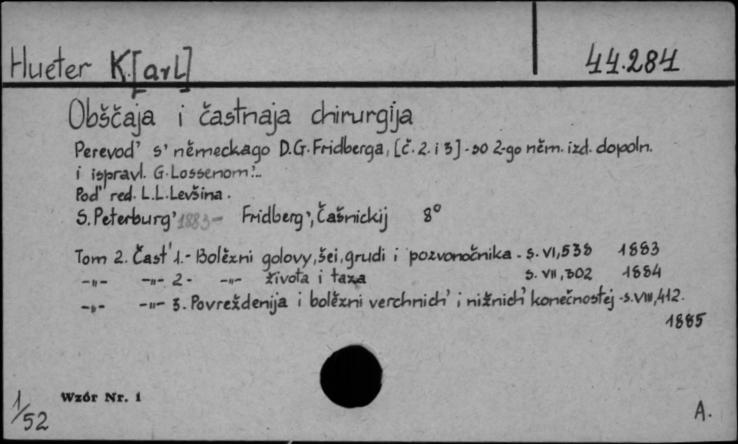 Hueter K.[arl]
44.284
Obščaja i častnaja chirurgija
Perevod' s' německago D.G. Fridberga, [č. 2. i 3] - so 2-go něm. izd. dopoln.
i ispravl. G. Lossenom'..
Pod' red. L.L. Levšina.
S. Peterburg' 1883 - Fridberg', Čašnickij 8°
Tom 2. Čast' 1. - Bolězni golovy, šei, grudi i pozvonočnika. s. VI, 538 1883
-"- -"- 2 - -"- života i taza s. VII, 302 1884
-"- -"- 3. Povreždenija i bolězni verchnich' i nižnich' konečnostej - s. VIII, 412.
1885
Wzór Nr. 1
1/52
A.